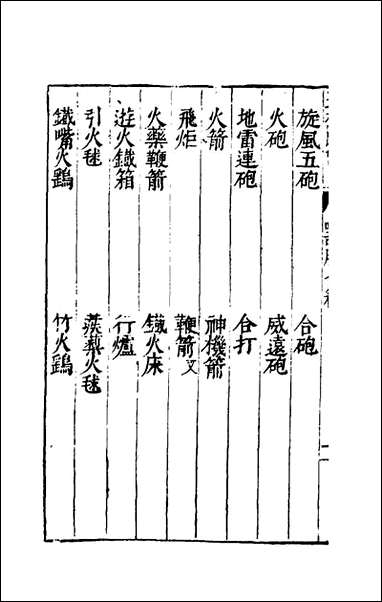 旋風五砲　合砲
火砲　威遠砲
地雷連砲　合打
火箭　神機箭
飛炬　鞭箭又
火藥鞭箭　鐵火床
遊火鐵箱　行爐
引火毬　蒺藜火毬
鐵嘴火鷂　竹火鷂